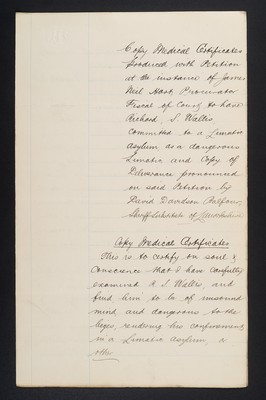 Copy Medical Certificates
produced with Petition
at the instance of James
Neil Hart, Procurator
Fiscal of Court to have
Richard, S. Walles,
Committed to a Lunatic
Asylum as a dangerous
Lunatic and Copy of
Deliverance pronounced
on said Petition by
David Davidson Balfour,
Sheriff Substitute of
Copy Medical Certificates
This is to certify on soul &
Conscience that I have carefully
examined R. S. Walles, and
find him to be of unsound
mind and dangerous to the
lieges, rendering his confinement
in a Lunatic Asylum, or
other